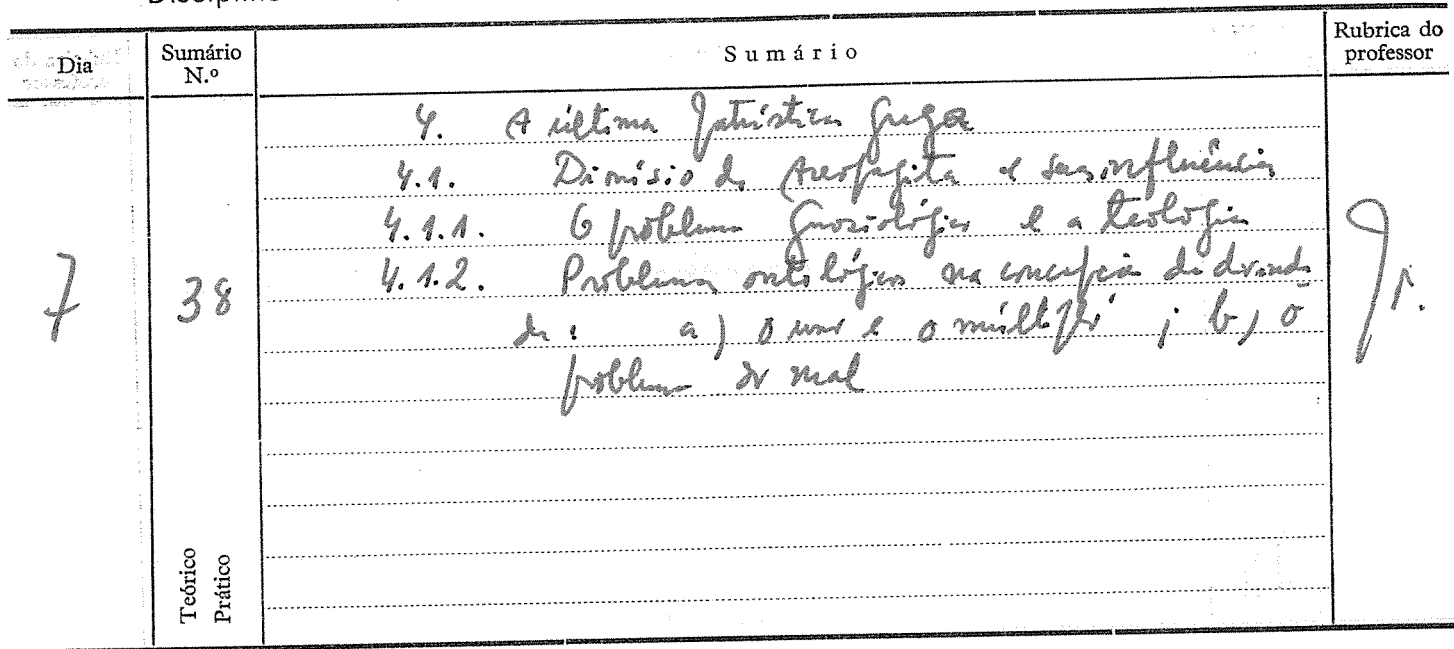 Dia
Sumário N.º
Sumário
Rubrica do professor
7
38
4. A última Patrística Grega
4.1. Dionísio do Areopagita e sua influência
4.1.1. O problema gnoziológico e a teologia
4.1.2. Problema ontológico na concepção da divinda
de : a) O uno e o múltiplo ; b) o
problema do mal
Teórico
Prático